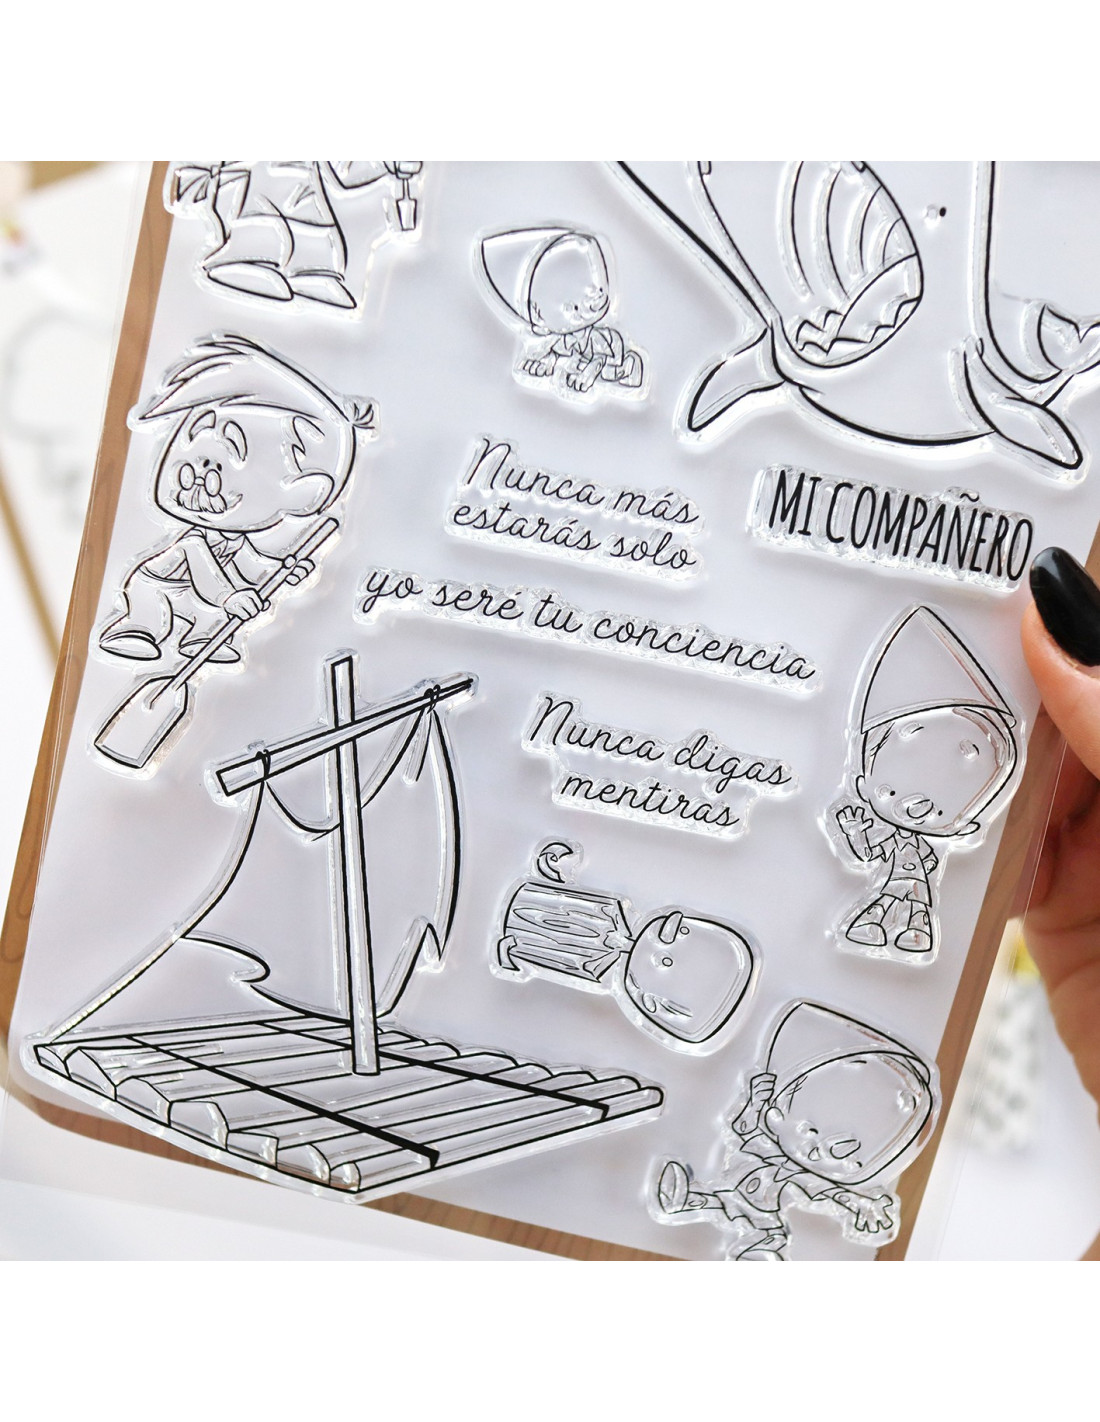 Nunca más
estarás solo
MI COMPAÑERO
yo seré tu conciencia
Nunca digas
mentiras